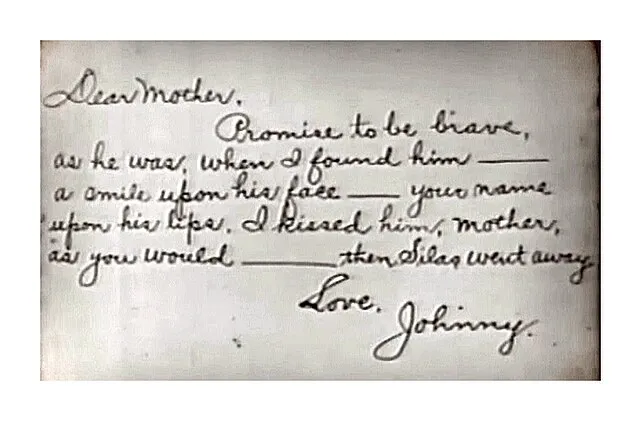 Dear Mother.
Promise to be brave,
as he was, when I found him ——
a smile upon his face —— your name
upon his lips. I kissed him, mother,
as you would ——— then Silas went away
Love.
Johnny.